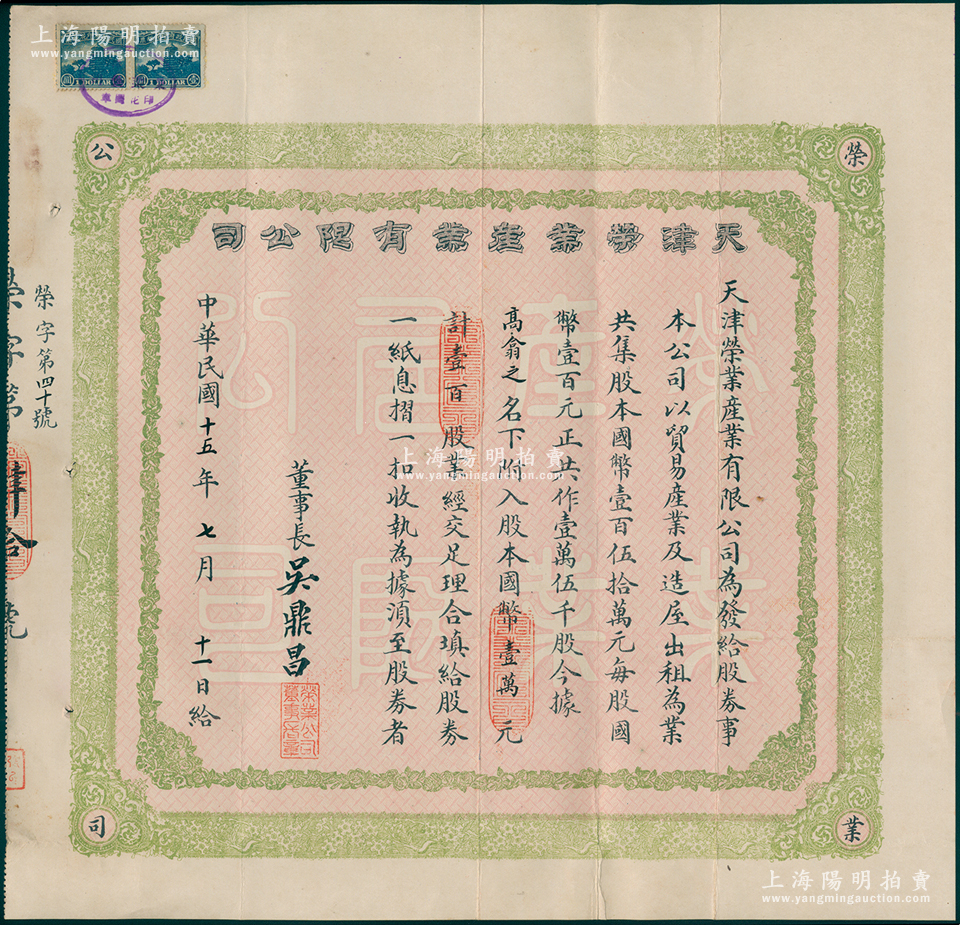 上海陽明拍賣
www.yangmingauction.com
壹 圓
1 DOLLAR
1 DOLLAR
榮
業
公
司
天津榮業產業有限公司
天津榮業產業有限公司為發給股券事
本公司以貿易產業及造屋出租為業
共集股本國幣壹百伍拾萬元每股國
幣壹百元正共作壹萬伍千股今據
高翕之名下附入股本國幣壹萬元
計壹百股業經交足理合填給股券
一紙息摺一扣收執為據須至股券者
董事長吳鼎昌
中華民國十五年七月十一日給
榮字第四十號
榮字第肆拾號
上海陽明拍賣
www.yangmingauction.com
上海陽明拍賣
www.yangmingauction.com